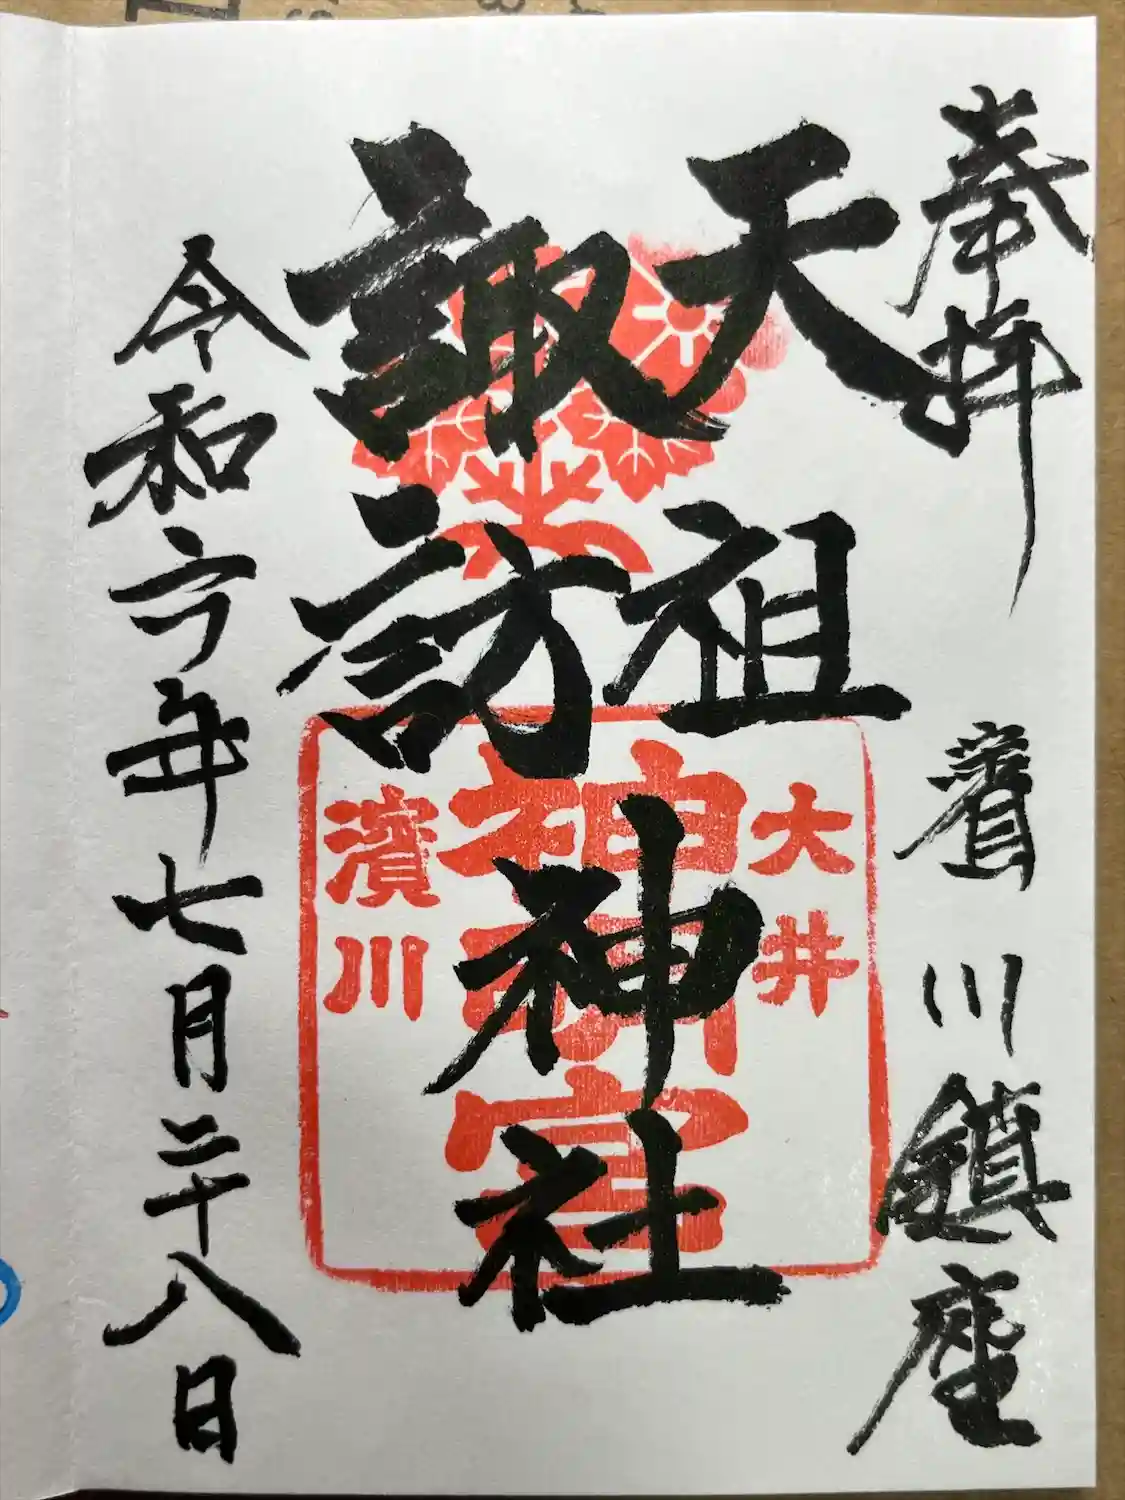 奉拝
濱川鎮座
天祖
諏訪
神社
大井
神明宮
濱川
令和六年七月二十八日